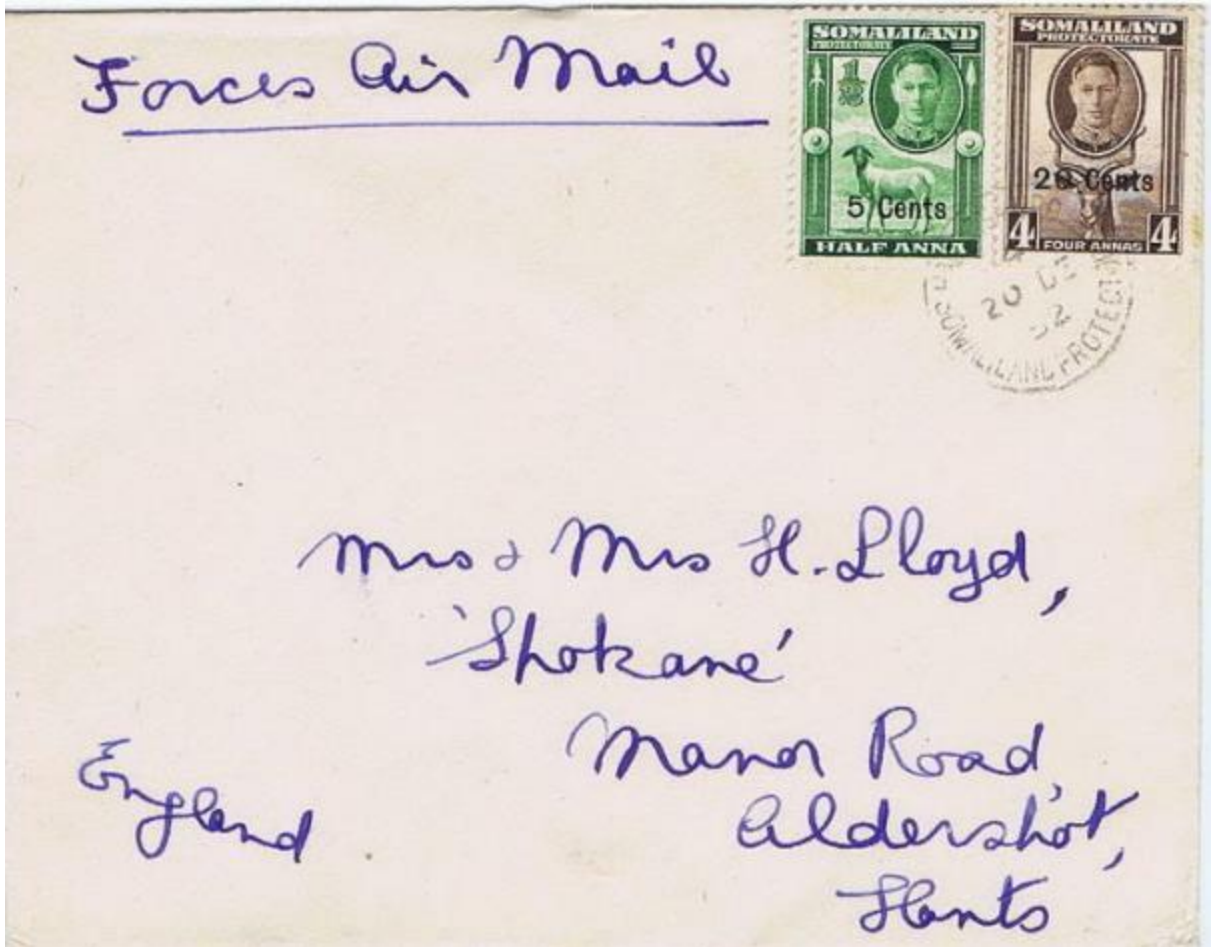 Forces Air Mail
SOMALILAND
PROTECTORATE
1/2
5 Cents
HALF ANNA
SOMALILAND
PROTECTORATE
20 Cents
4 FOUR ANNAS 4
20 DE
52
SOMALILAND PROTECT
Mrs & Mrs H. Lloyd,
'Shokane'
Manor Road,
Aldershot,
Hants
England